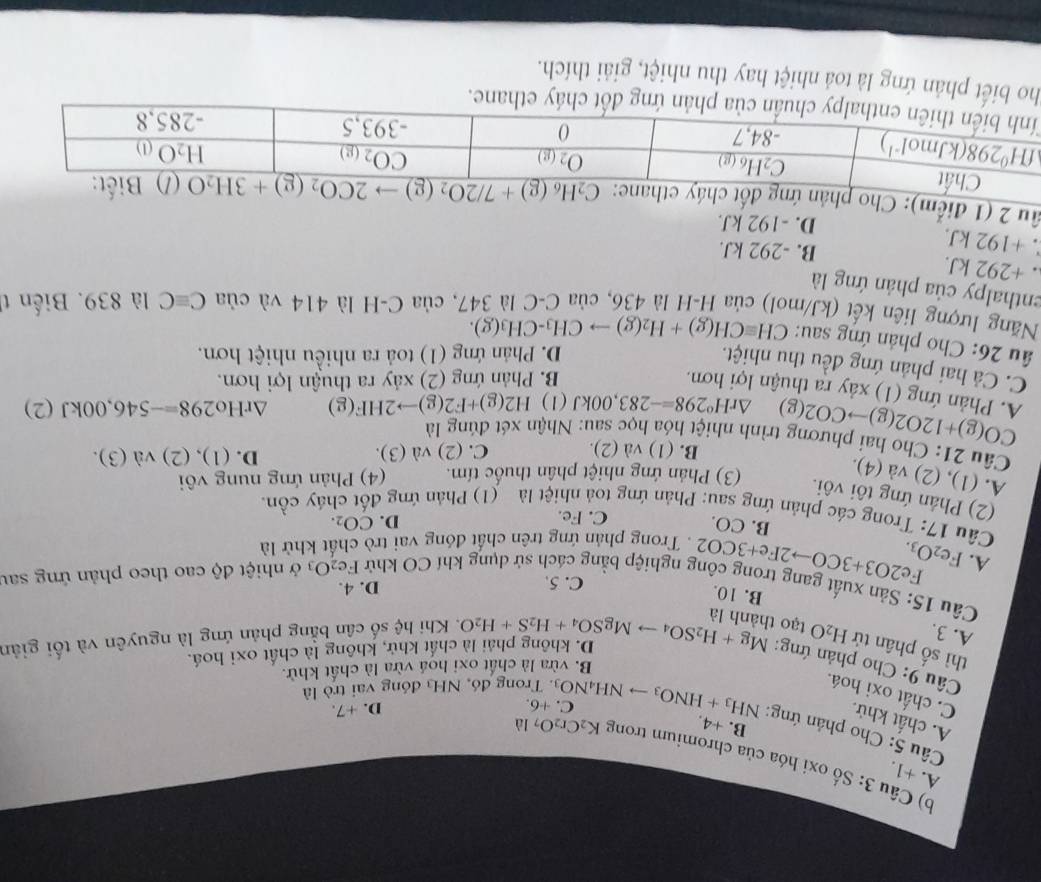 b) Câu 3: Số oxi hóa của chromium trong K₂Cr₂O₇ là
A. +1. B. +4. C. +6. D. +7.
Câu 5: Cho phản ứng: NH₃ + HNO₃ → NH₄NO₃. Trong đó, NH₃ đóng vai trò là
A. chất khử. B. vừa là chất oxi hoá vừa là chất khử.
C. chất oxi hoá. D. không phải là chất khử, không là chất oxi hoá.
Câu 9: Cho phản ứng: Mg + H₂SO₄ → MgSO₄ + H₂S + H₂O. Khi hệ số cân bằng phản ứng là nguyên và tối giản
thì số phân tử H₂O tạo thành là
A. 3. B. 10. C. 5. D. 4.
Câu 15: Sản xuất gang trong công nghiệp bằng cách sử dụng khí CO khử Fe₂O₃ ở nhiệt độ cao theo phản ứng sau
Fe2O3+3CO→2Fe+3CO2 . Trong phản ứng trên chất đóng vai trò chất khử là
A. Fe₂O₃. B. CO. C. Fe. D. CO₂.
Câu 17: Trong các phản ứng sau: Phản ứng toả nhiệt là (1) Phản ứng đốt cháy cồn.
(2) Phản ứng tôi vôi. (3) Phản ứng nhiệt phân thuốc tím. (4) Phản ứng nung vôi
A. (1), (2) và (4). B. (1) và (2). C. (2) và (3). D. (1), (2) và (3).
Câu 21: Cho hai phương trình nhiệt hóa học sau: Nhận xét đúng là
CO(g)+12O2(g)→CO2(g) ΔrH⁰298=−283,00kJ (1) H2(g)+F2(g)→2HF(g) ΔrHo298=−546,00kJ (2)
A. Phản ứng (1) xảy ra thuận lợi hơn. B. Phản ứng (2) xảy ra thuận lợi hơn.
C. Cả hai phản ứng đều thu nhiệt. D. Phản ứng (1) toả ra nhiều nhiệt hơn.
âu 26: Cho phản ứng sau: CH≡CH(g) + H₂(g) → CH₃-CH₃(g).
Năng lượng liên kết (kJ/mol) của H-H là 436, của C-C là 347, của C-H là 414 và của C≡C là 839. Biến t
enthalpy của phản ứng là
. +292 kJ. B. -292 kJ.
. +192 kJ. D. -192 kJ.
âu 2 (1 điểm): Cho phản ứng đốt cháy ethane: C₂H₆ (g) + 7/2O₂ (g) → 2CO₂ (g) + 3H₂O (l) Biết:
Chất C₂H₆ (g) O₂ (g) CO₂ (g) H₂O (l)
ΔfH⁰298(kJmol⁻¹) -84,7 0 -393,5 -285,8
ính biến thiên enthalpy chuẩn của phản ứng đốt cháy ethane.
ho biết phản ứng là toả nhiệt hay thu nhiệt, giải thích.